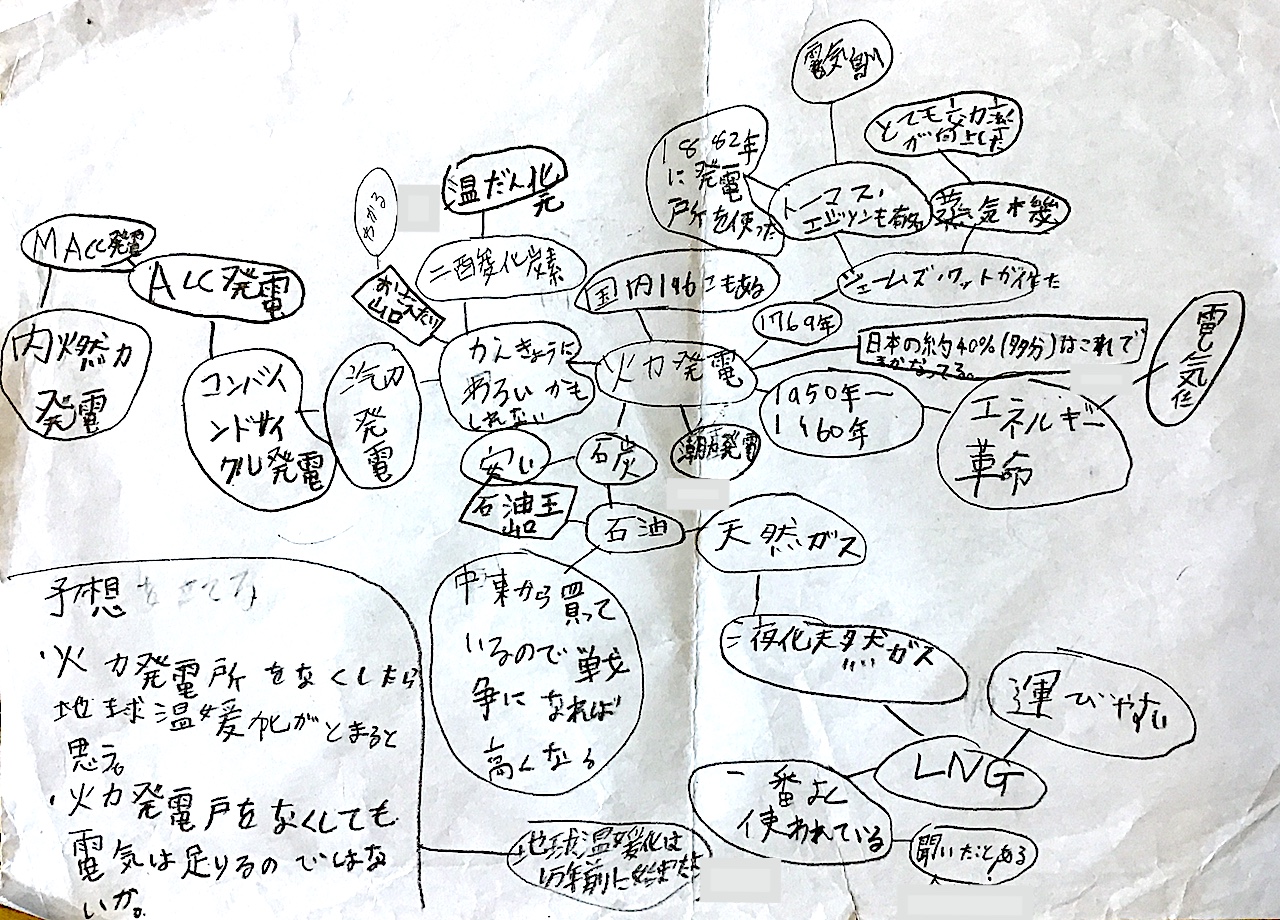 電気自
とても効率
が向上した
1882年
に発電
所を使った
トーマス・
エジソンも有名
蒸気
ジェームズ・ワットが作た
温だん化
わかる
二酸化炭素
おさえたり
山口
国内
にもある
1769年
日本の約40%(多分)はこれで
まかなってる。
電気
MACC発電
ACC発電
内燃力
発電
コンバイ
ンドサイ
クル発電
汽力
発
電
かんきょうに
わるい かも
しれない
火力発電
1950年〜
1960年
エネルギー
革命
安い
石炭
発電
石油王
山口
石油
天然ガス
中東から買って
いるので戦
争になれば
高くなる
液化天然ガス
運びやすい
LNG
一番よく
使われている
聞いたことある
予想を立てる
・火力発電所をなくしたら
地球温暖化がとまると
思う。
・火力発電戸をなくしても
電気は足りるのではな
いか。
地球温暖化は
万年前に始また